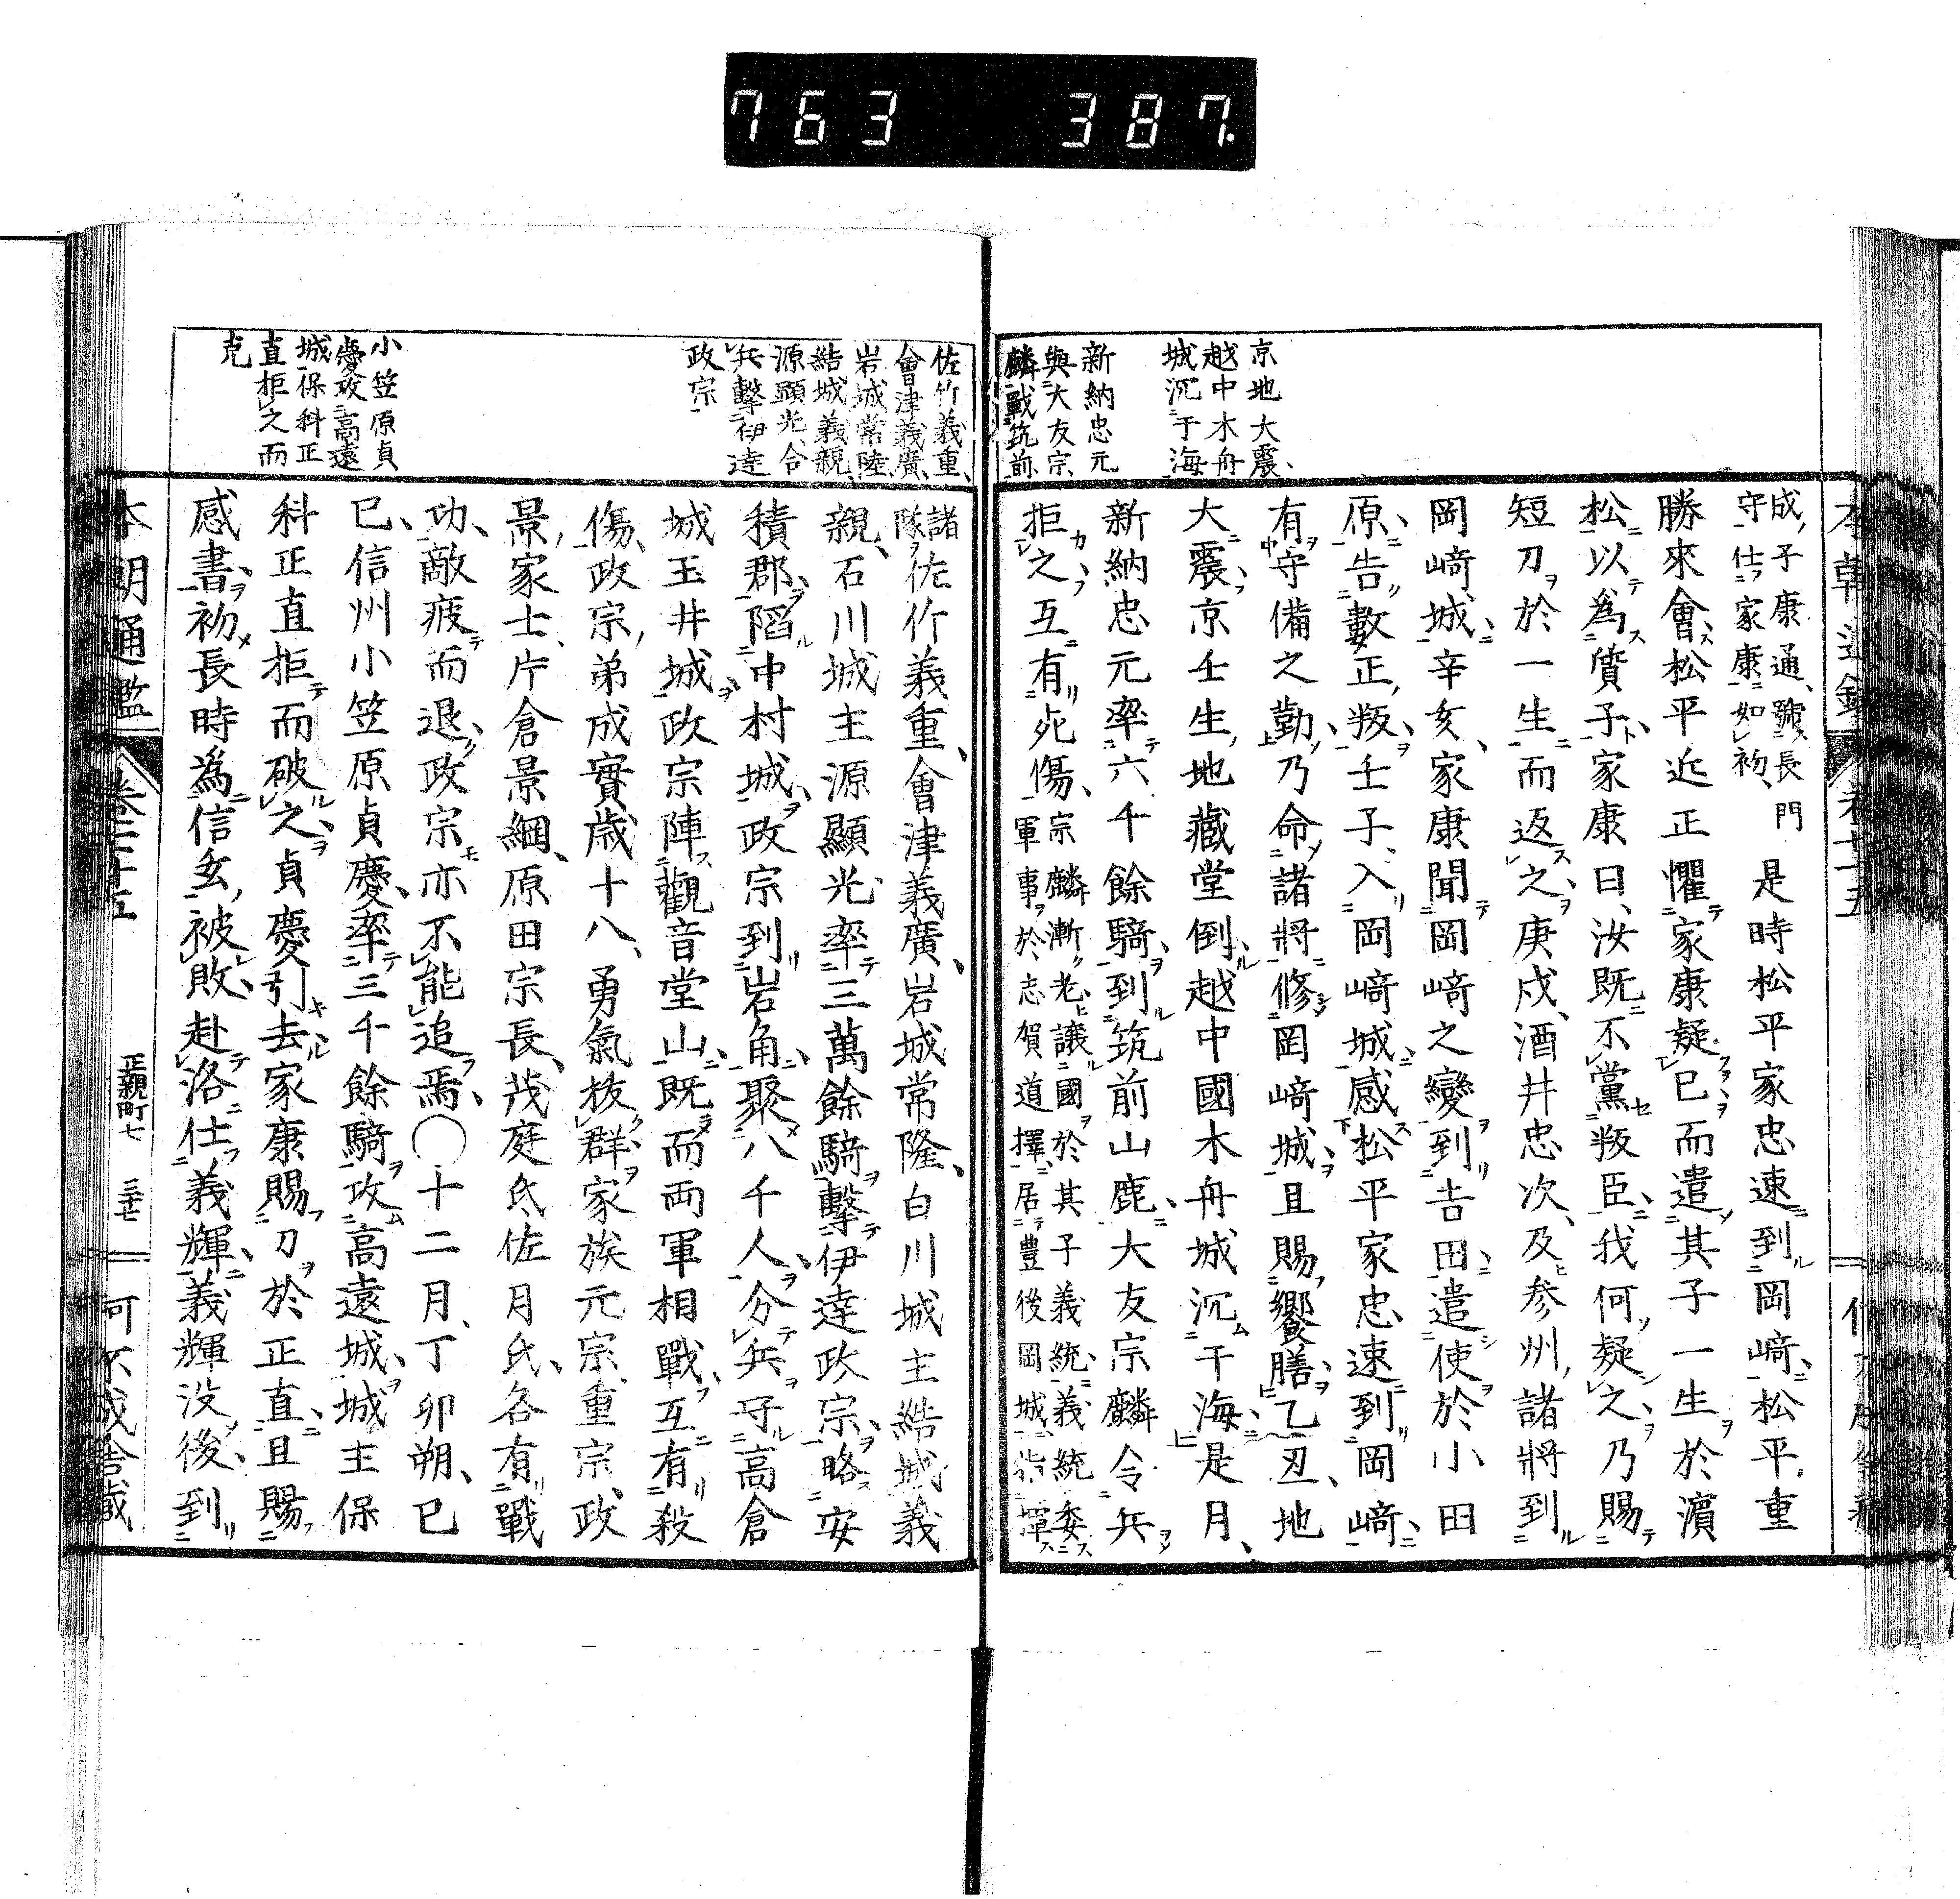 763 387.
京地大震、
越中木舟
城沉于海
新納忠元
與大友宗
麟戰筑前
成子康通、號長門
守仕家康如初、
是時松平家忠速到岡﨑、松平重
勝來會、松平近正懼家康疑已而遣其子一生於濵
松以為質子、家康曰、汝既不黨叛臣、我何疑之、乃賜
短刀於一生而返之、庚戍、酒井忠次、及参州諸將到
岡﨑城、辛亥、家康聞岡﨑之變到吉田、遣使於小田
原、告數正叛、壬子、入岡﨑城、感松平家忠速到岡﨑、
有守備之勤、乃命諸將修岡﨑城、且賜饗膳、乙丑、地
大震、京壬生地藏堂倒、越中國木舟城沉于海、是月、
新納忠元率六千餘騎、到筑前山鹿、大友宗麟令兵
拒之、互有死傷、
宗麟漸老、讓國於其子義統、義統委
軍事於志賀道擇、居豊後岡城、指揮
諸
隊
佐竹義重、
會津義廣、
岩城常陸、
結城義親、
源顯光、合
兵擊伊達
政宗
小笠原貞
慶攻高遠
城、保科正
直拒之而
克
佐竹義重、會津義廣、岩城常隆、白川城主結城義
親、石川城主源顯光、率三萬餘騎、擊伊達政宗、略安
積郡、䧟中村城、政宗到岩角、聚八千人、分兵守高倉
城玉井城、政宗陣觀音堂山、既而両軍相戰、互有殺
傷、政宗弟成實歳十八、勇氣拔群、家族元宗、重宗、政
景、家士片倉景綱、原田宗長、茂庭氏佐月氏、各有戰
功、敵疲而退、政宗亦不能追焉、〇十二月、丁卯朔、已
巳、信州小笠原貞慶、率三千餘騎攻高遠城、城主保
科正直拒而破之、貞慶引去、家康賜刀於正直、且賜
感書、初長時為信玄被敗、赴洛仕義輝、義輝没後、到
本朝通鑑 卷七十五 正親町七 三十七